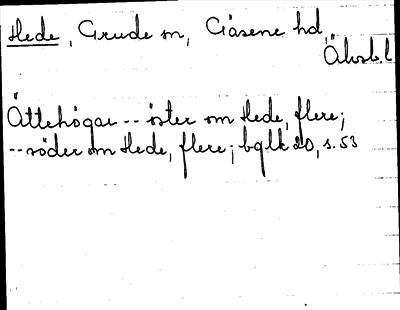 Hede, Grude sn, Gäsene hd,
Älvsb.l
Ättehögar -- öster om Hede, flere;
-- söder om Hede, flere; bglk 20, s. 53